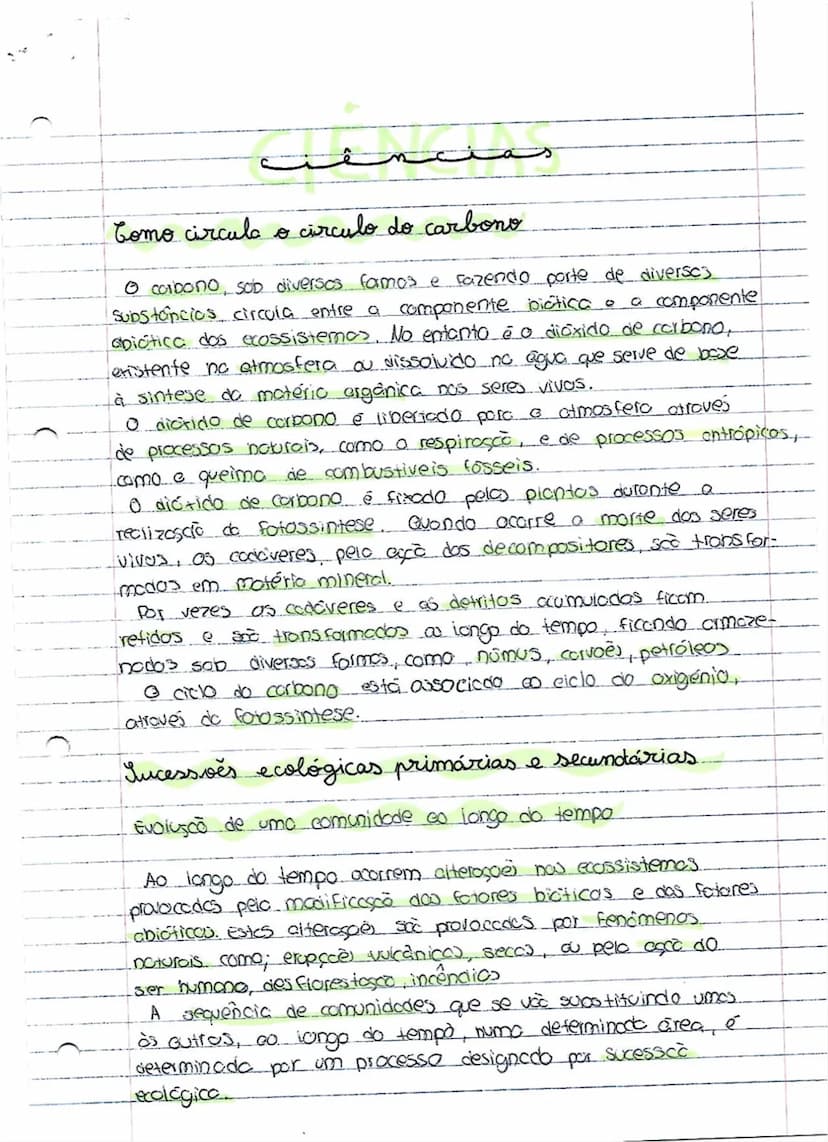 CIÊNCIAS
ciências
Como circula o circulo do carbono
O carbono, sob diversas formas e fazendo parte de diversas
substâncias, circula entre a componente biótica e a componente
abiótica dos ecossistemas. No entanto é o dióxido de carbono,
existente na atmosfera ou dissolvido na água que serve de base
à sintese da matéria orgânica nos seres vivos.
O dióxido de carbono é libertado para a atmosfera através
de processos naturais, como a respiração, e de processos antrópicos,
como a queima de combustiveis fósseis.
O dióxido de carbono é fixado pelas plantas durante a
realização da fotossintese. Quando ocorre a morte dos seres
vivos, os cadáveres, pela ação dos decompositores, são transfor-
mados em matéria mineral.
Por vezes os cadáveres e os detritos acumulados ficam
retidos e são transformados ao longo do tempo, ficando armaze-
nados sob diversas formas, como húmus, carvoês, petróleos
O ciclo do carbono está associado ao ciclo do oxigénio,
através da fotossintese.
Sucessoês ecológicas primárias e secundárias
Evolução de uma comunidade ao longo do tempo
Ao longo do tempo ocorrem alteraçoês nos ecossistemas
provocadas pela modificação dos fatores bióticos e dos fatores
abióticos. Estas alteraçoês são provocadas por fenómenos
naturais como; erupçoês vulcânicas, secas, ou pela ação do
ser humano, desflorestação, incêndios
A sequência de comunidades que se vão substituindo umas
às outras, ao longo do tempo, numa determinada área, é
determinada por um processo designado por sucessão
ecológica.